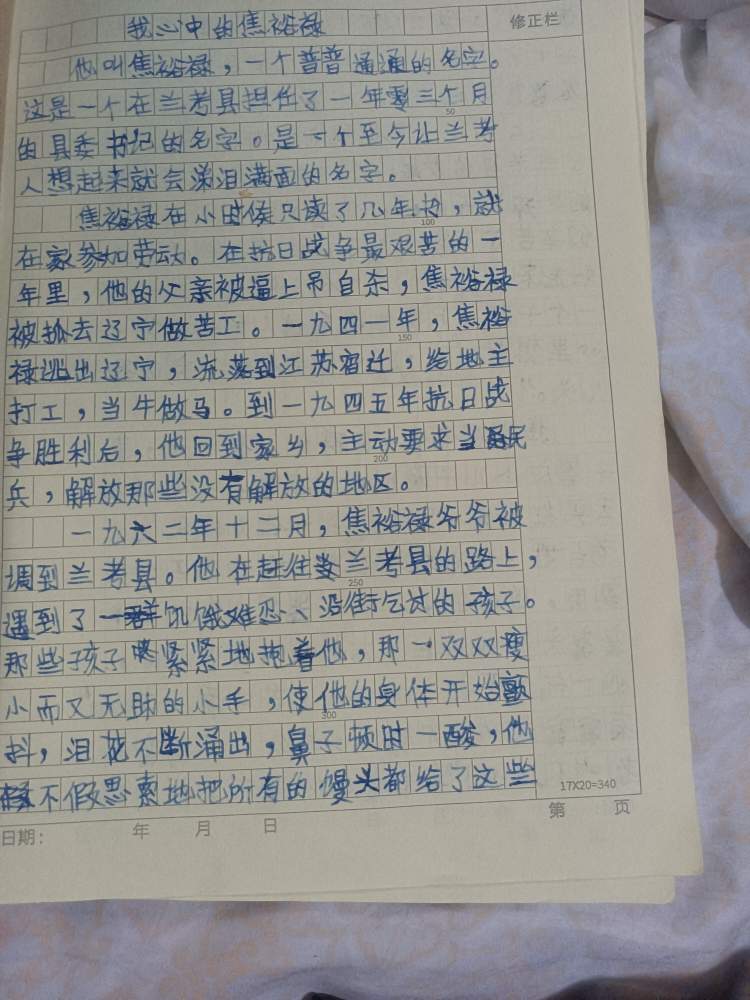 我心中的焦裕禄
修正栏
他叫焦裕禄，一个普普通通的名字。
这是一个在兰考县担任了一年零三个月
50
的县委书记的名字。是一个至今让兰考
人想起来就会涕泪满面的名字。
焦裕禄在小时候只读了几年书，就
100
在家参加劳动。在抗日战争最艰苦的一
年里，他的父亲被逼上吊自杀，焦裕禄
被抓去辽宁做苦工。一九四一年，焦裕
150
禄逃出辽宁，流落到江苏宿迁，给地主
打工，当牛做马。到一九四五年抗日战
争胜利后，他回到家乡，主动要求当民
200
兵，解放那些没有解放的地区。
一九六二年十二月，焦裕禄爷爷被
调到兰考县。他在赶往兰考县的路上，
250
遇到了一群饥饿难忍、沿街乞讨的孩子。
那些孩子紧紧地抱着他，那一双双瘦
小而又无助的小手，使他的身体开始颤
300
抖，泪花不断涌出，鼻子顿时一酸，他
不假思索地把所有的馒头都给了这些
17X20=340
日期： 年 月 日
第 页